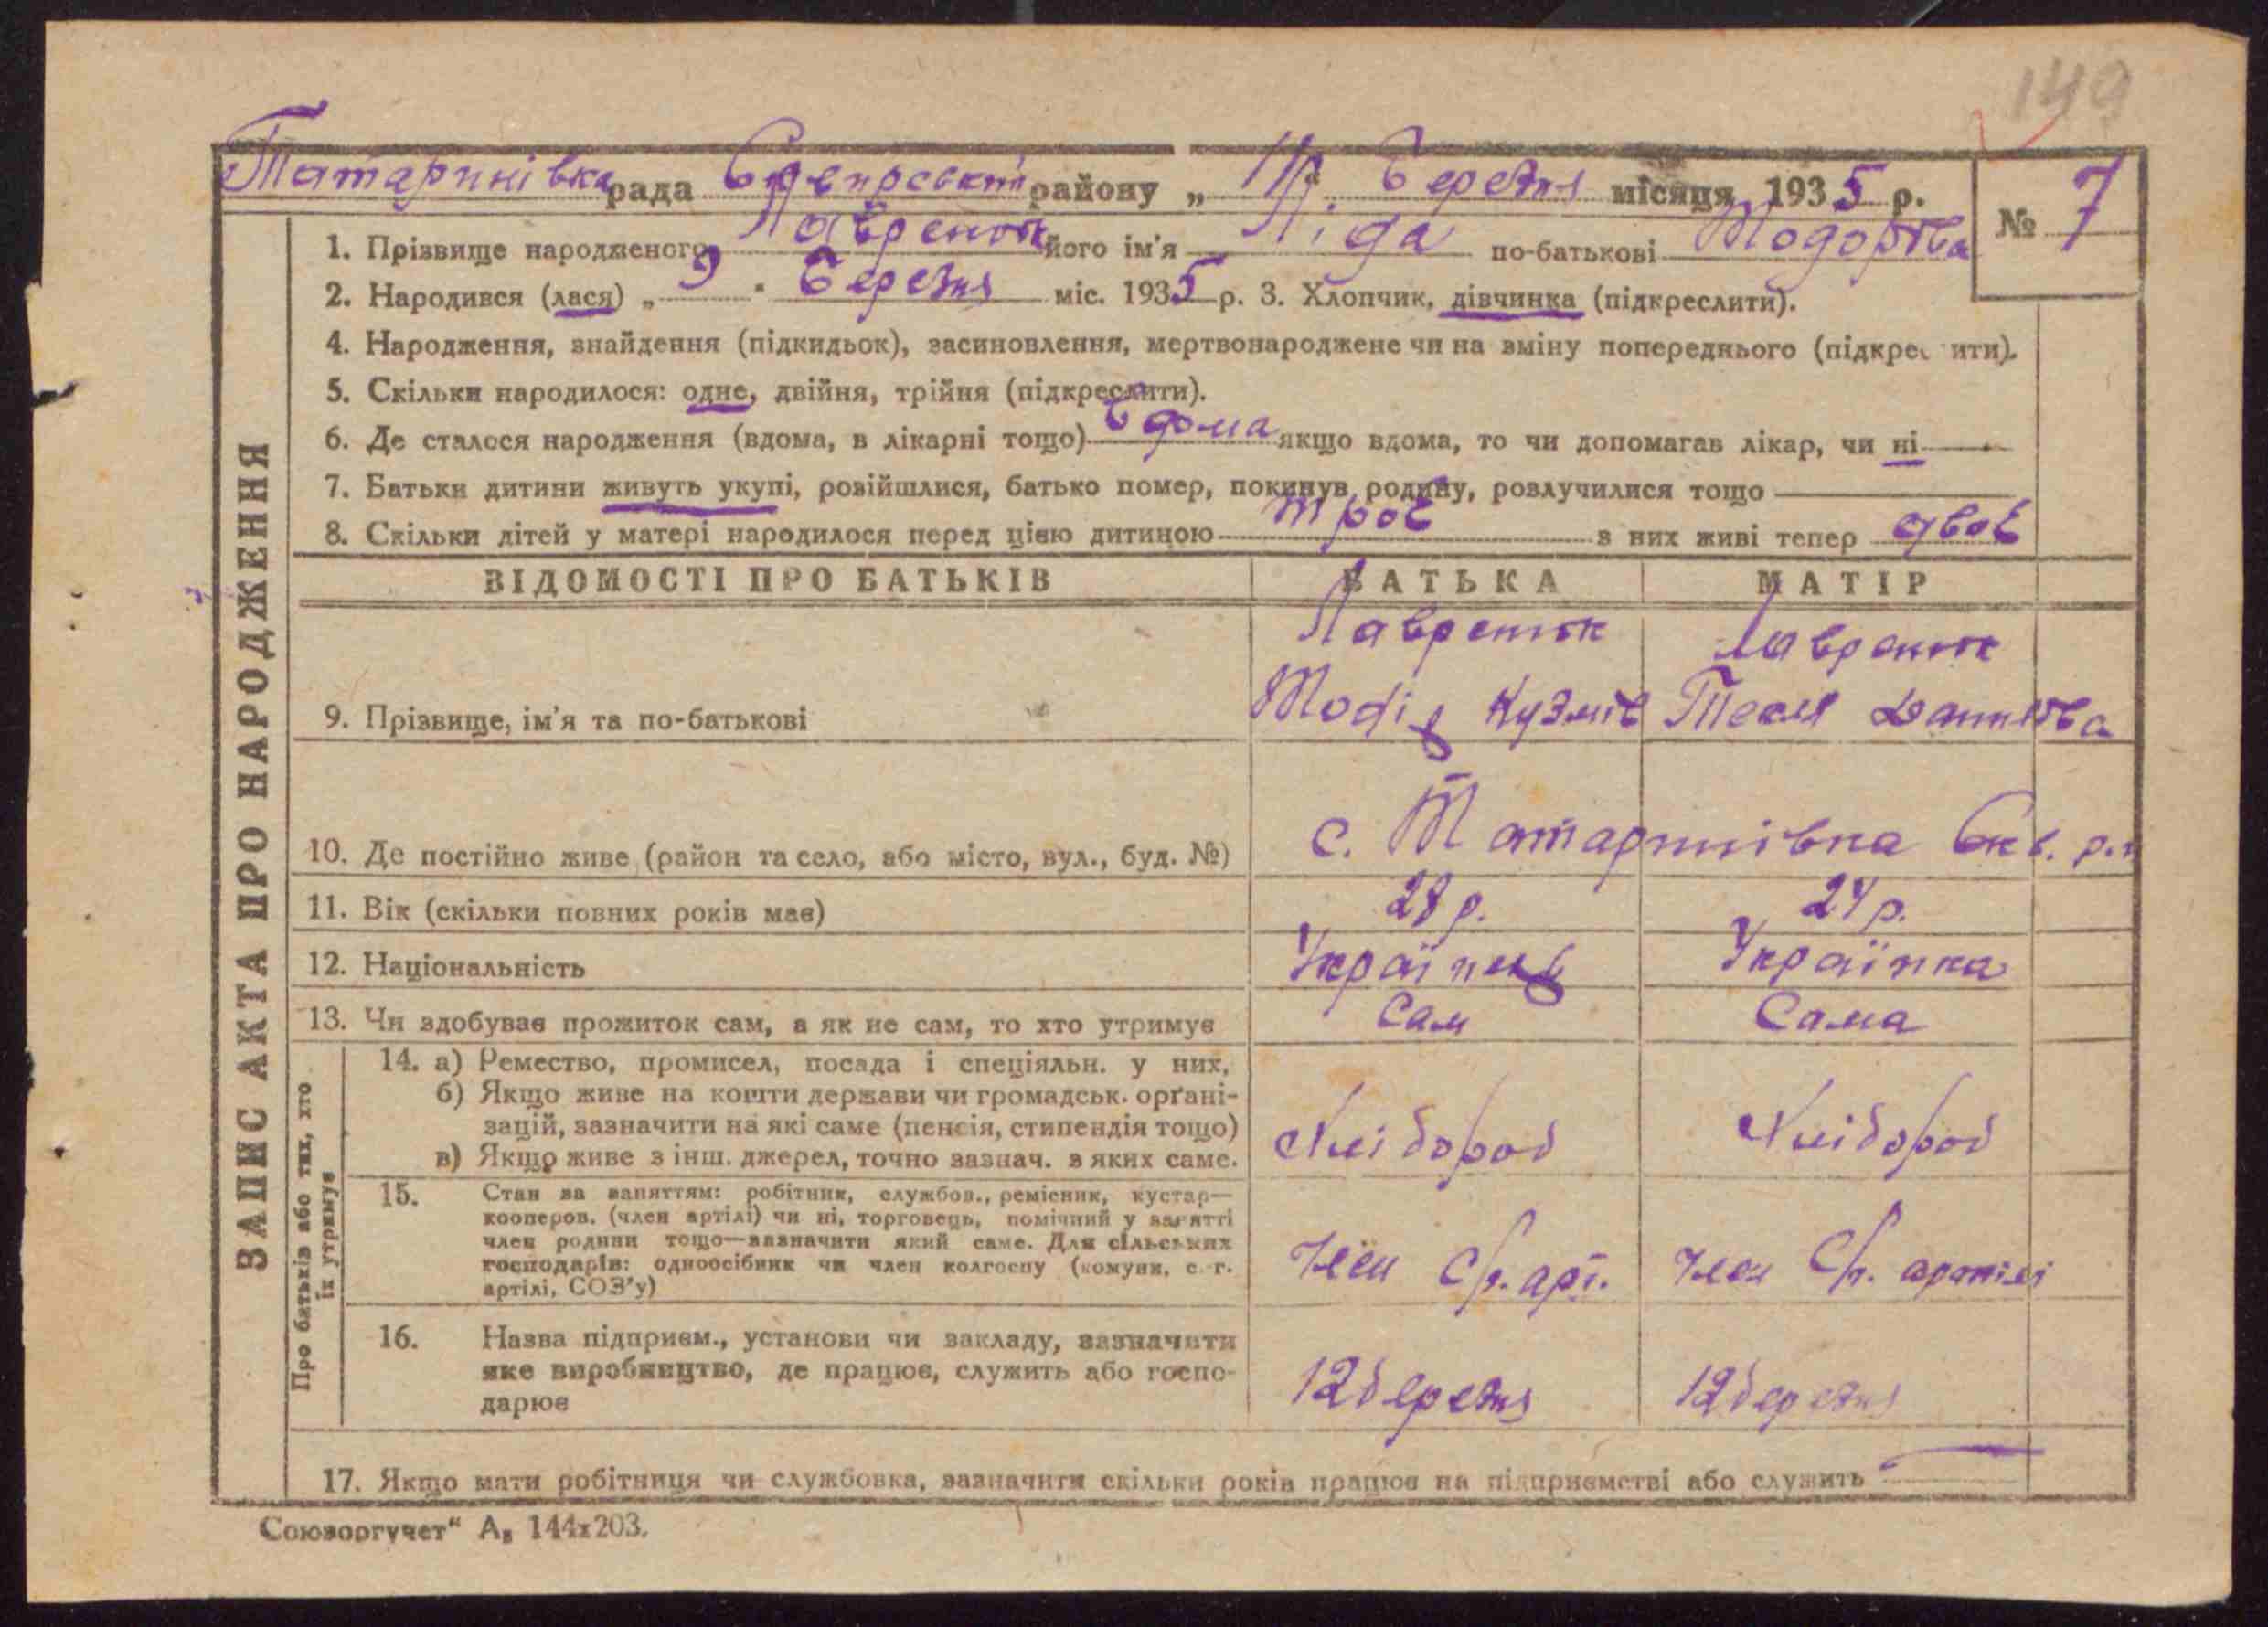 149
Татаринівка рада району „ березня місяця 1935 р.
№ 7
1. Прізвище народженого Лавренюк його ім'я Ліда по-батькові Тодорівна
2. Народився (лася) „ 9 " березня міс. 1935 р. 3. Хлопчик, дівчинка (підкреслити).
4. Народження, знайдення (підкидьок), засиновлення, мертвонароджене чи на зміну попереднього (підкреслити).
5. Скільки народилося: одне, двійня, трійня (підкреслити).
6. Де сталося народження (вдома, в лікарні тощо) вдома якщо вдома, то чи допомагав лікар, чи ні
7. Батьки дитини живуть укупі, розійшлися, батько помер, покинув родину, розлучилися тощо
8. Скільки дітей у матері народилося перед цією дитиною троє з них живі тепер двоє
ВІДОМОСТІ ПРО БАТЬКІВ БАТЬКА МАТІР
Лавренюк Лавренюк
9. Прізвище, ім'я та по-батькові Кузмів Текля
10. Де постійно живе (район та село, або місто, вул., буд. №) с. Татаринівка
11. Вік (скільки повних років має) 28 р. 24 р.
12. Національність Українець Українка
13. Чи здобуває прожиток сам, а як не сам, то хто утримує Сам Сама
14. а) Ремество, промисел, посада і спеціяльн. у них,
б) Якщо живе на кошти держави чи громадськ. орґані-
зацій, зазначити на які саме (пенсія, стипендія тощо)
в) Якщо живе з інш. джерел, точно зазнач. з яких саме. Хлібороб Хлібороб
15. Стан за заняттям: робітник, службов., ремісник, кустар—
кооперов. (член артілі) чи ні, торговець, помічний у занятті
член родини тощо—зазначити який саме. Для сільських
господарів: одноосібник чи член колгоспу (комуни, с.-г.
артілі, СОЗ'у)
Член арт. Член артілі
16. Назва підприєм., установи чи закладу, зазначити
яке виробництво, де працює, служить або госпо-
дарює
12 березня 12 березня
17. Якщо мати робітниця чи службовка, зазначити скільки років працює на підприємстві або служить
Союзоргучет" А₅ 144х203.
ЗАПИС АКТА ПРО НАРОДЖЕННЯ
Про батьків або тих, хто
їх утримує